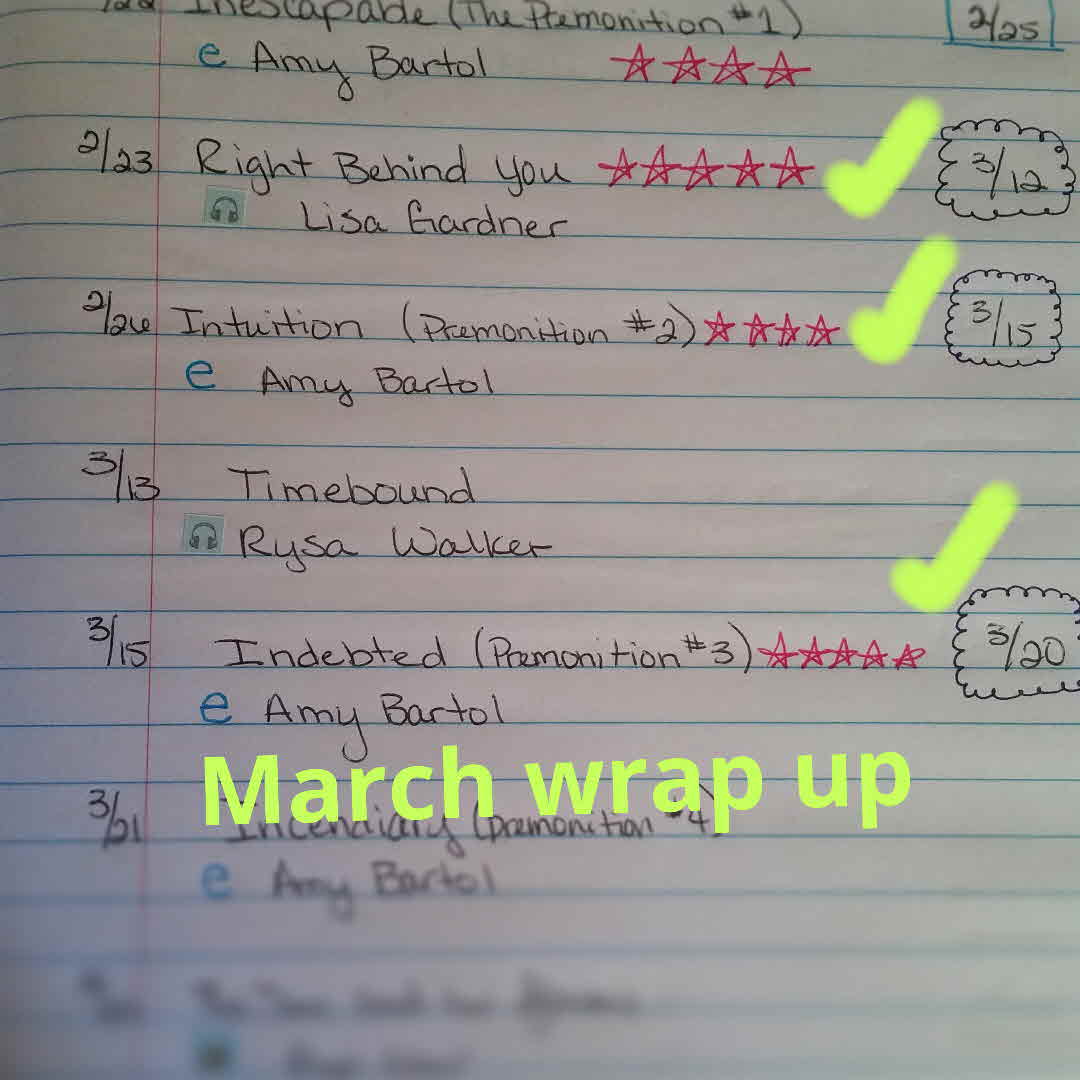 Inescapable (The Premonition #1) 2/25
e Amy Bartol
2/23 Right Behind You 3/12
Lisa Gardner
2/26 Intuition (Premonition #2) 3/15
e Amy Bartol
3/13 Timebound
Rysa Walker
3/15 Indebted (Premonition #3) 3/20
e Amy Bartol
March wrap up
3/21 Incendiary (Premonition #4)
e Amy Bartol